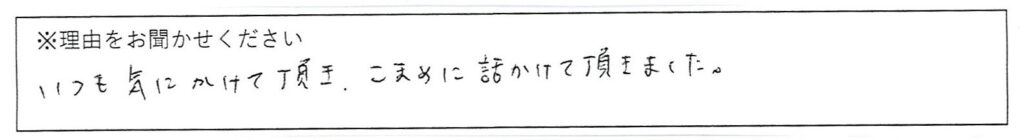 ※理由をお聞かせください
いつも気にかけて頂き、こまめに話かけて頂きました。